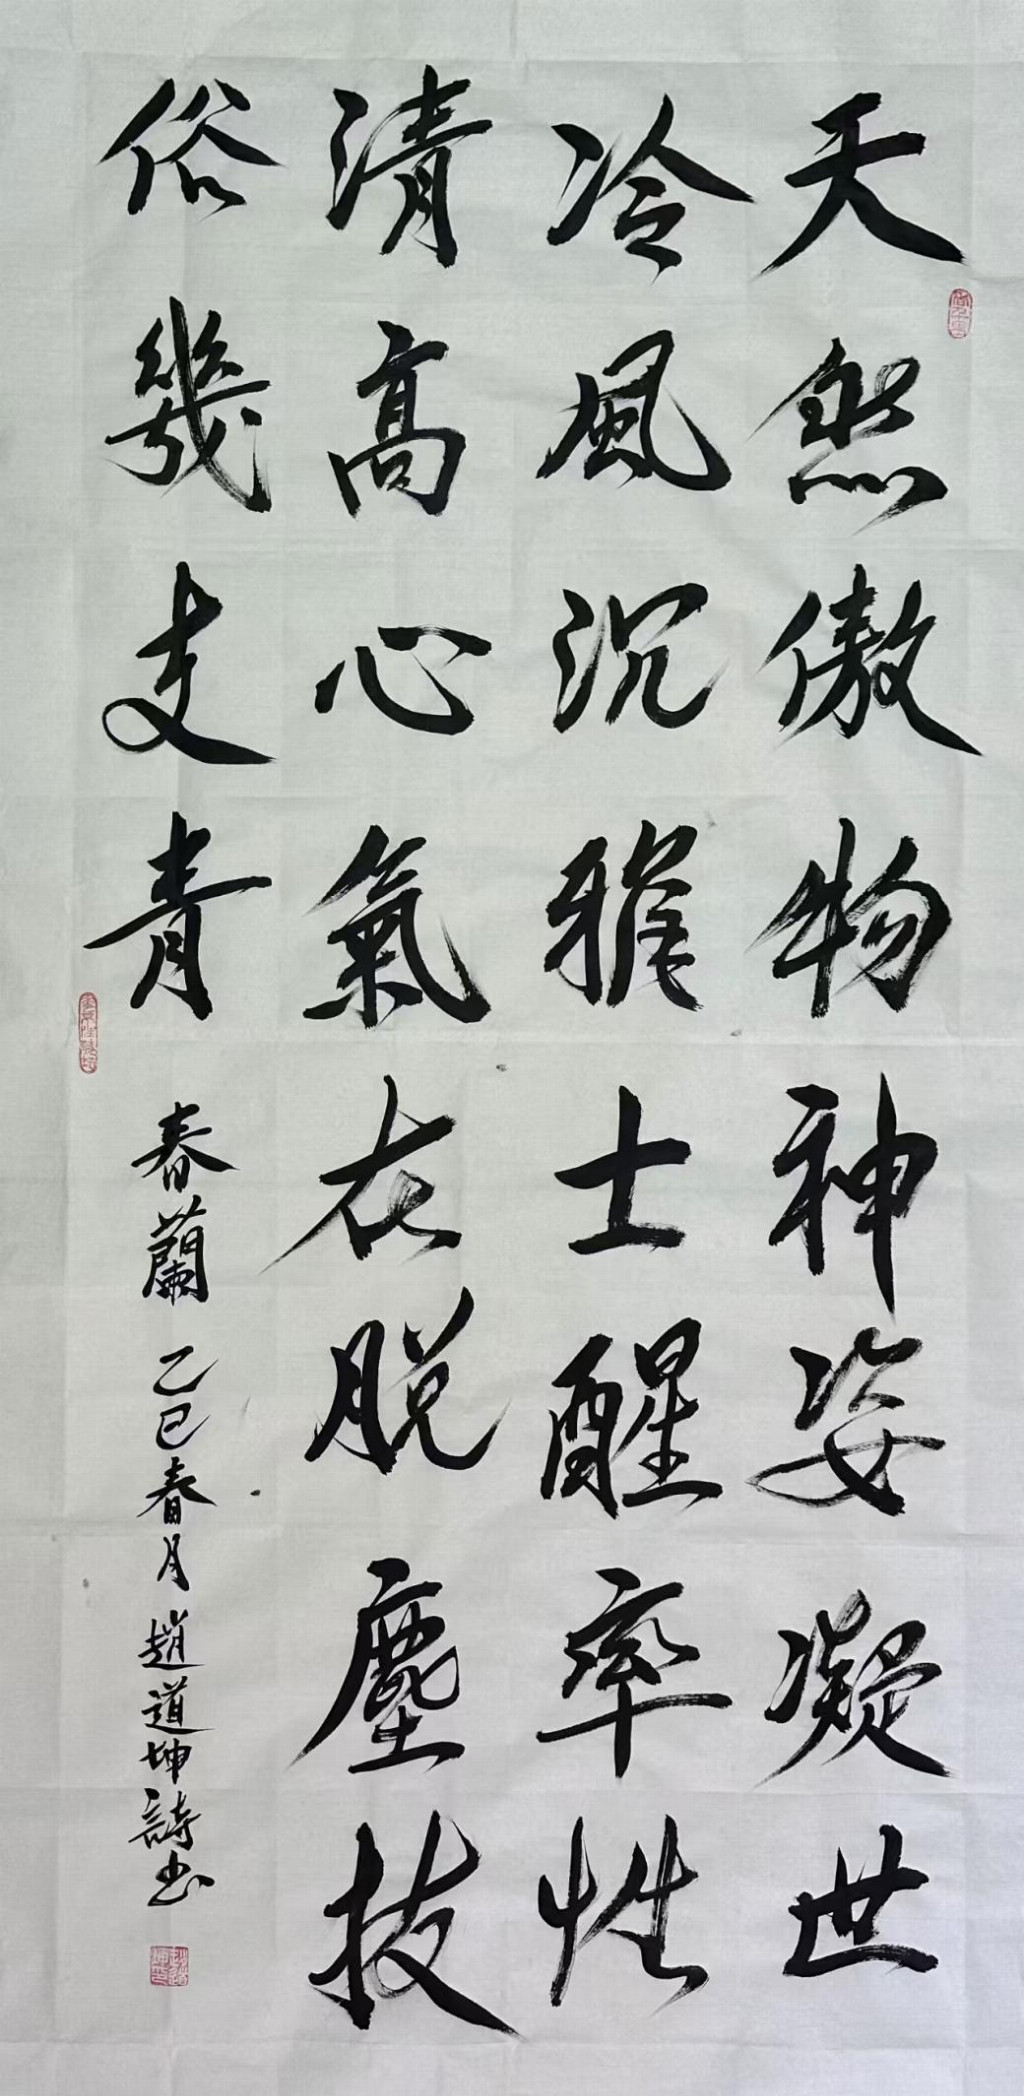 天然傲物神姿凝世
冷風沉雅士醒率性
清高心氣在脱塵拔
俗幾支青
春蘭 乙巳春月 趙道坤詩书